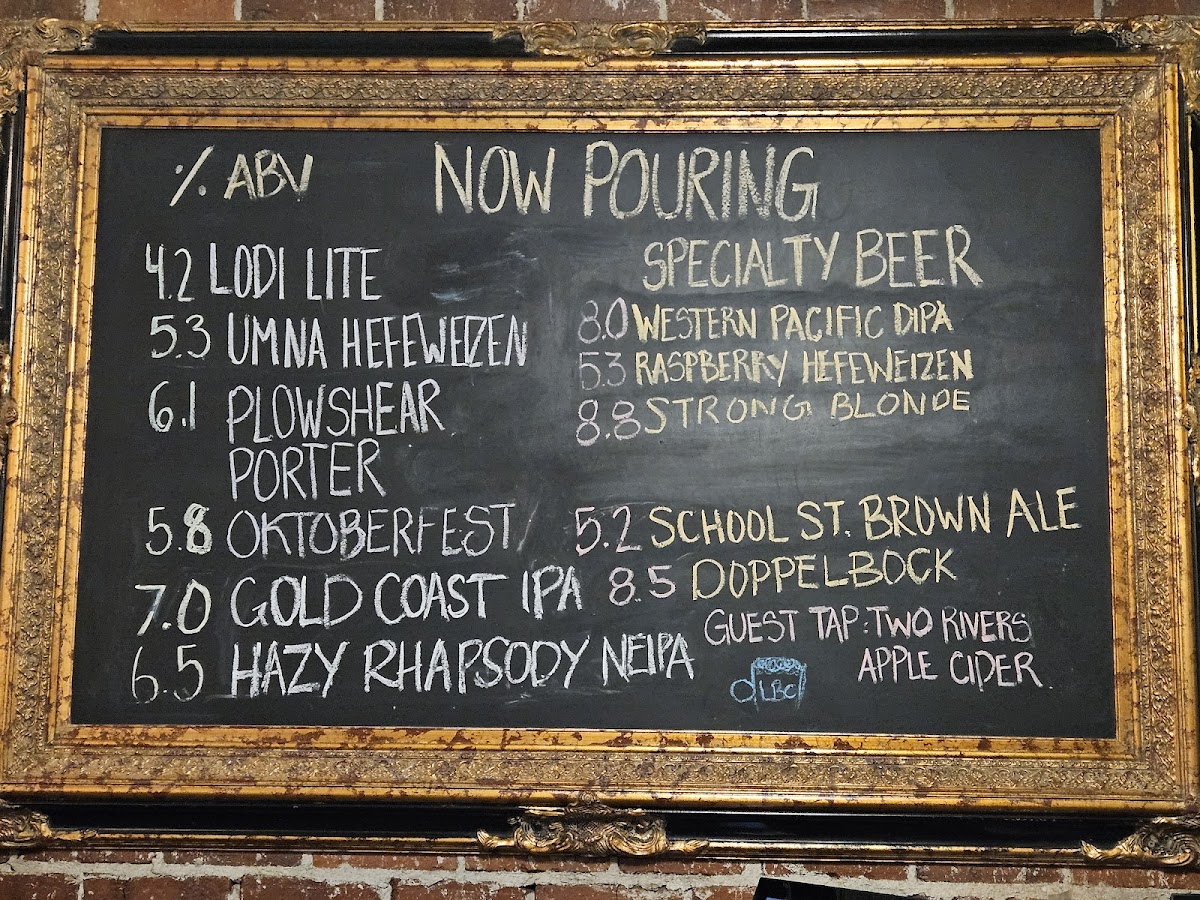 % ABV
NOW POURING
4.2 LODI LITE
5.3 UMNA HEFEWEIZEN
6.1 PLOWSHEAR
PORTER
5.8 OKTOBERFEST
7.0 GOLD COAST IPA
6.5 HAZY RHAPSODY NEIPA
SPECIALTY BEER
8.0 WESTERN PACIFIC DIPA
5.3 RASPBERRY HEFEWEIZEN
8.8 STRONG BLONDE
5.2 SCHOOL ST. BROWN ALE
8.5 DOPPELBOCK
GUEST TAP: TWO RIVERS
APPLE CIDER
LBC